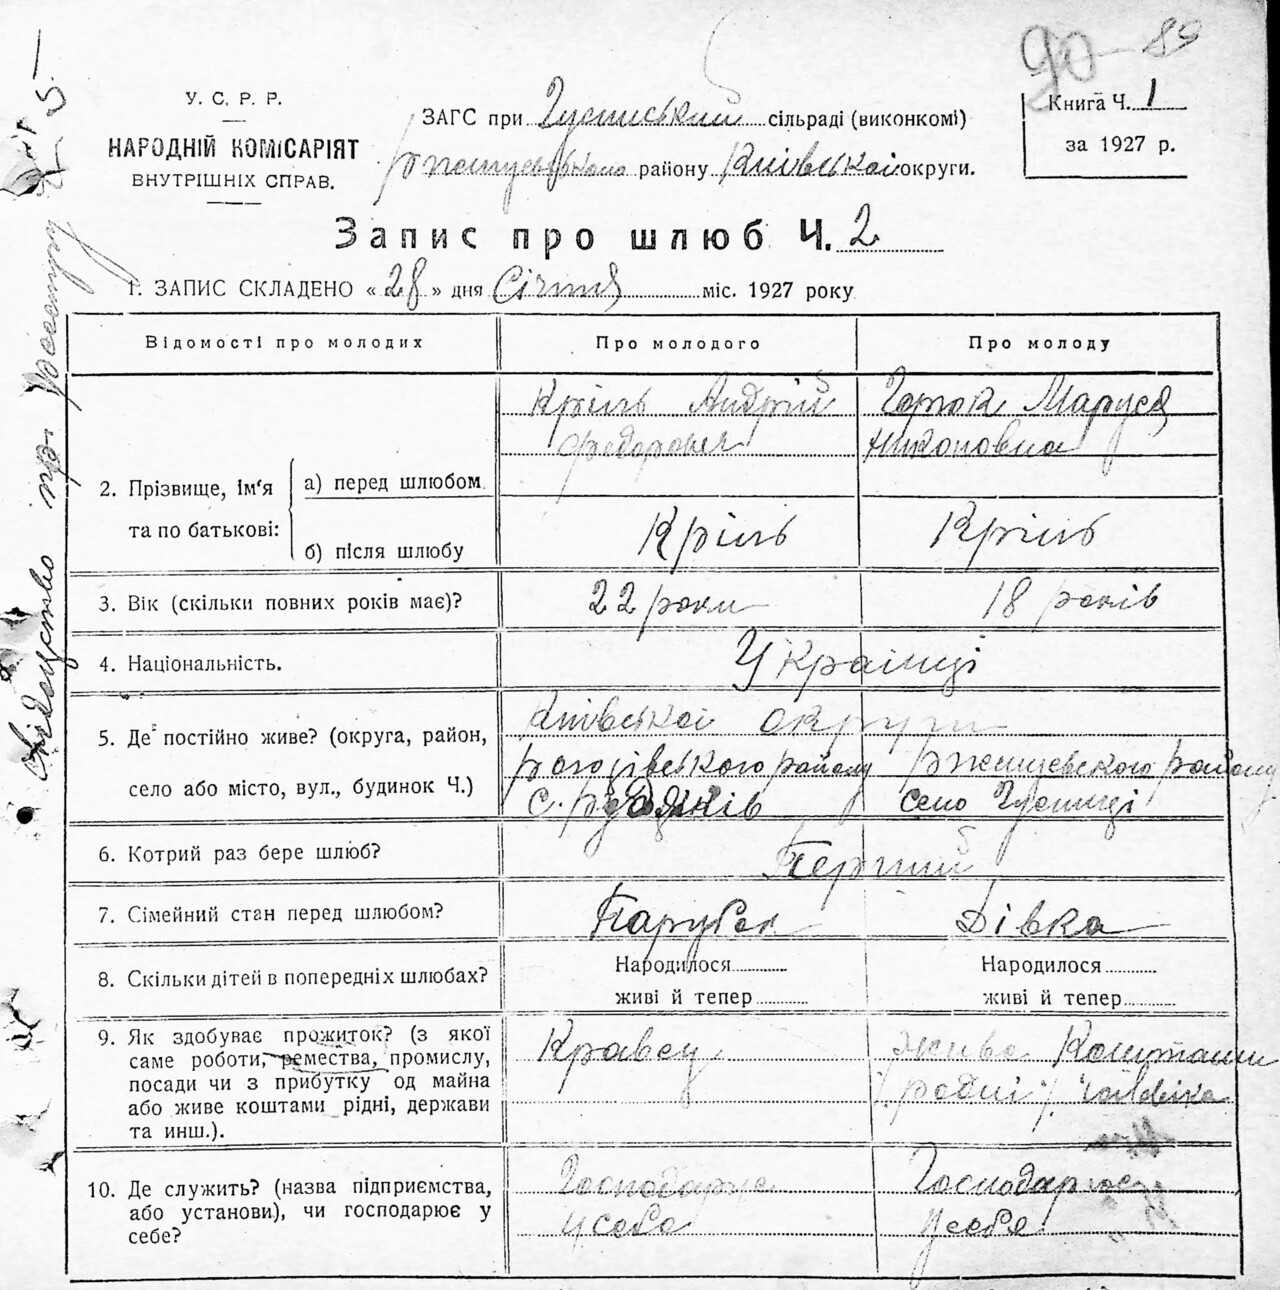 90 89
У. С. Р. Р.
НАРОДНІЙ КОМІСАРІЯТ
ВНУТРІШНІХ СПРАВ.
ЗАГС при сільраді (виконкомі)
району Київської округи.
Книга Ч. 1
за 1927 р.
Запис про шлюб Ч. 2
1. ЗАПИС СКЛАДЕНО « 28 » дня Січня міс. 1927 року
Відомості про молодих Про молодого Про молоду
2. Прізвище, ім'я та по батькові:
а) перед шлюбом
Кріль Андрій
Маруся
б) після шлюбу
Кріль Кріль
3. Вік (скільки повних років має)? 22 роки 18 років
4. Національність. Українці
5. Де постійно живе? (округа, район,
село або місто, вул., будинок Ч.)
Київської округи
рогозівського району ржищевского району
с. село
6. Котрий раз бере шлюб? Перший
7. Сімейний стан перед шлюбом? Парубок Дівка
8. Скільки дітей в попередніх шлюбах? Народилося Народилося
живі й тепер живі й тепер
9. Як здобуває прожиток? (з якої
саме роботи, ремества, промислу,
посади чи з прибутку од майна
або живе коштами рідні, держави
та инш.).
Кравец
живе Коштами
родні
10. Де служить? (назва підприємства,
або установи), чи господарює у
себе?
Господарує Господарює
усебе усебе
Свідецтво